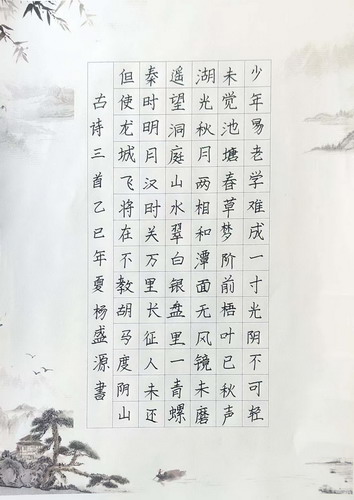 少年易老学难成一寸光阴不可轻
未觉池塘春草梦阶前梧叶已秋声
湖光秋月两相和潭面无风镜未磨
遥望洞庭山水翠白银盘里一青螺
秦时明月汉时关万里长征人未还
但使龙城飞将在不教胡马度阴山
古诗三首乙巳年夏杨盛源書